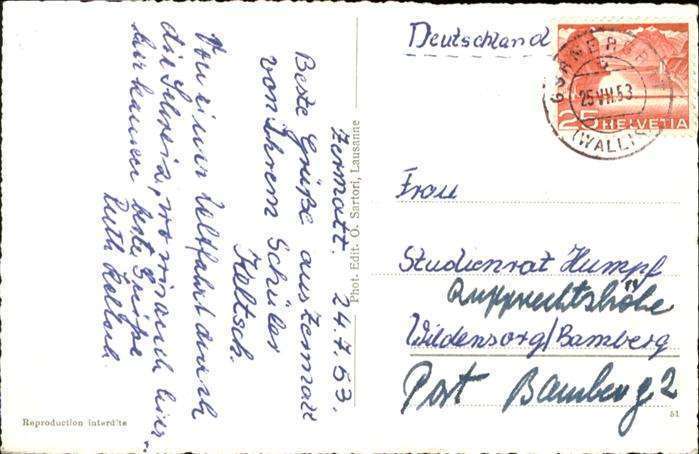 Zermatt. 24.7.53.
Beste Grüße aus Zermatt
von Ihrem Schüler
Holtsch.
Von einer Zeltfahrt durch
die Schweiz, wo wir auch hier-
her kamen beste Grüße
Ruth
Phot. Edit. O. Sartori, Lausanne
Reproduction interdite
Deutschland
GORNERGRAT
25.VII.53
(WALLIS)
25 HELVETIA
Frau
Studienrat Humpf
Rupprechtshöhe
Wildensorg/Bamberg
Post Bamberg 2
51